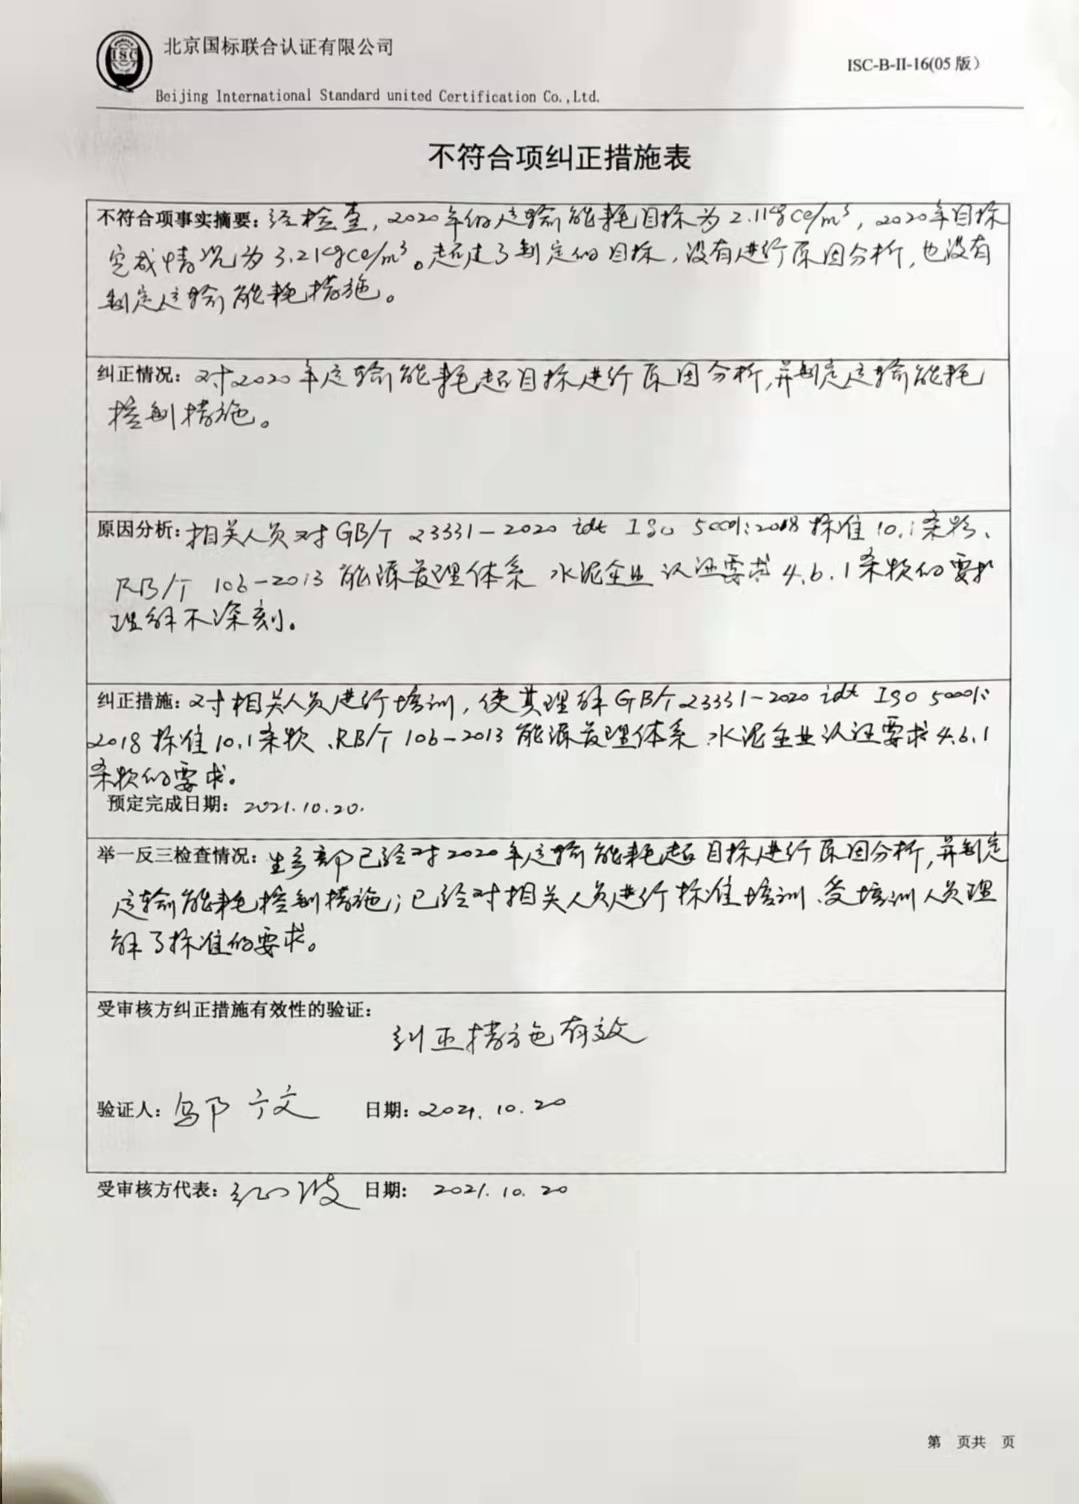 ISC
北京国标联合认证有限公司
ISC-B-II-16(05版)
Beijing International Standard united Certification Co.,Ltd.
不符合项纠正措施表
不符合项事实摘要:经检查,2020年的运输能耗目标为2.11kgce/m³,2020年目标
完成情况为3.21kgce/m³。超过了制定的目标,没有进行原因分析,也没有
制定运输能耗措施。
纠正情况:对2020年运输能耗超目标进行原因分析,并制定运输能耗
控制措施。
原因分析:相关人员对GB/T 23331-2020 idt ISO 50001:2018标准10.1条款、
RB/T 106-2013能源管理体系 水泥企业认证要求4.6.1条款的要求
理解不深刻。
纠正措施:对相关人员进行培训,使其理解GB/T 23331-2020 idt ISO 50001:
2018标准10.1条款、RB/T 106-2013能源管理体系 水泥企业认证要求4.6.1
条款的要求。
预定完成日期:2021.10.20.
举一反三检查情况:生产部已经对2020年运输能耗超目标进行原因分析,并制定
运输能耗控制措施;已经对相关人员进行标准培训、受培训人员理
解了标准的要求。
受审核方纠正措施有效性的验证:
纠正措施有效
验证人: 日期:2021.10.20
受审核方代表: 日期: 2021.10.20
第 页共 页